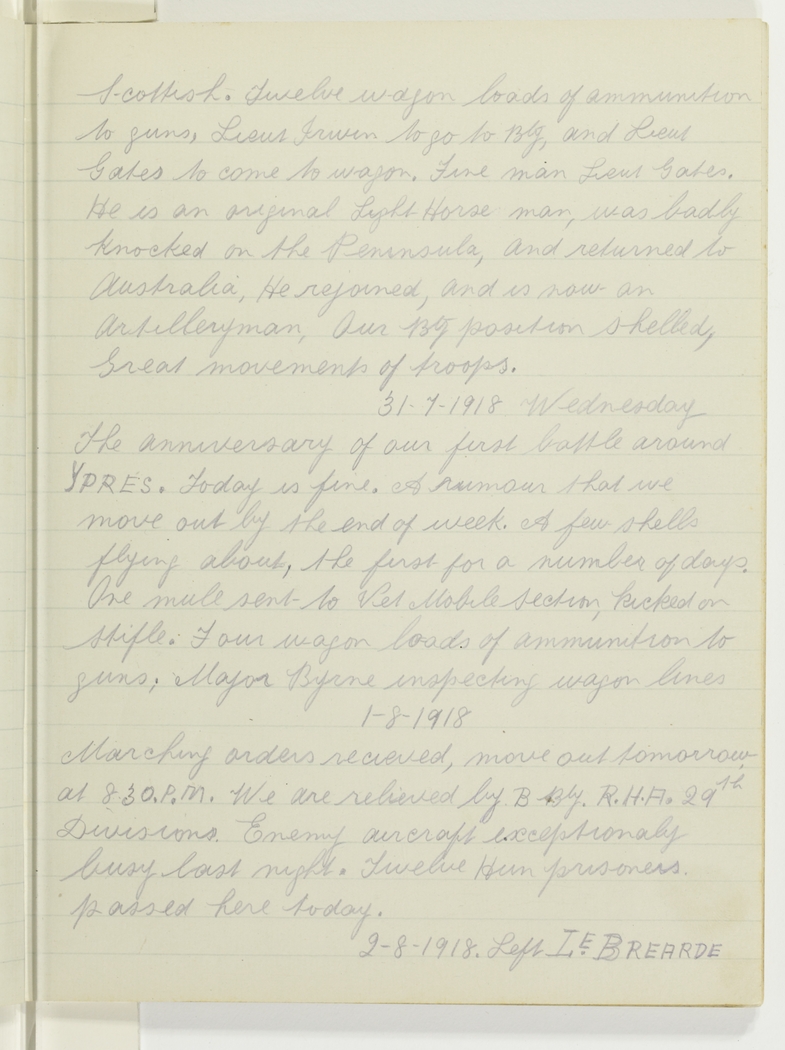 Scottish. Twelve wagon loads of ammunition
to guns, Lieut Irwin to go to Bty, and Lieut
Gates to come to wagon. Fine man Lieut Gates.
He is an original Light Horse man, was badly
knocked on the Peninsula, and returned to
Australia, He rejoined, and is now an
Artilleryman, Our Bty position shelled,
Great movements of troops.
31-7-1918 Wednesday
The anniversary of our first battle around
YPRES. Today is fine. A rumour that we
move out by the end of week. A few shells
flying about, the first for a number of days.
One mule sent to Vet Mobile Section, kicked on
stifle. Four wagon loads of ammunition to
guns; Major Byrne inspecting wagon lines
1-8-1918
Marching orders recieved, move out tomorrow
at 8.30.P.M. We are relieved by B Bty. R.H.A. 29th
Divisions. Enemy aircraft exceptionaly
busy last night. Twelve Hun prisoners.
passed here today.
2-8-1918. Left LE BREARDE